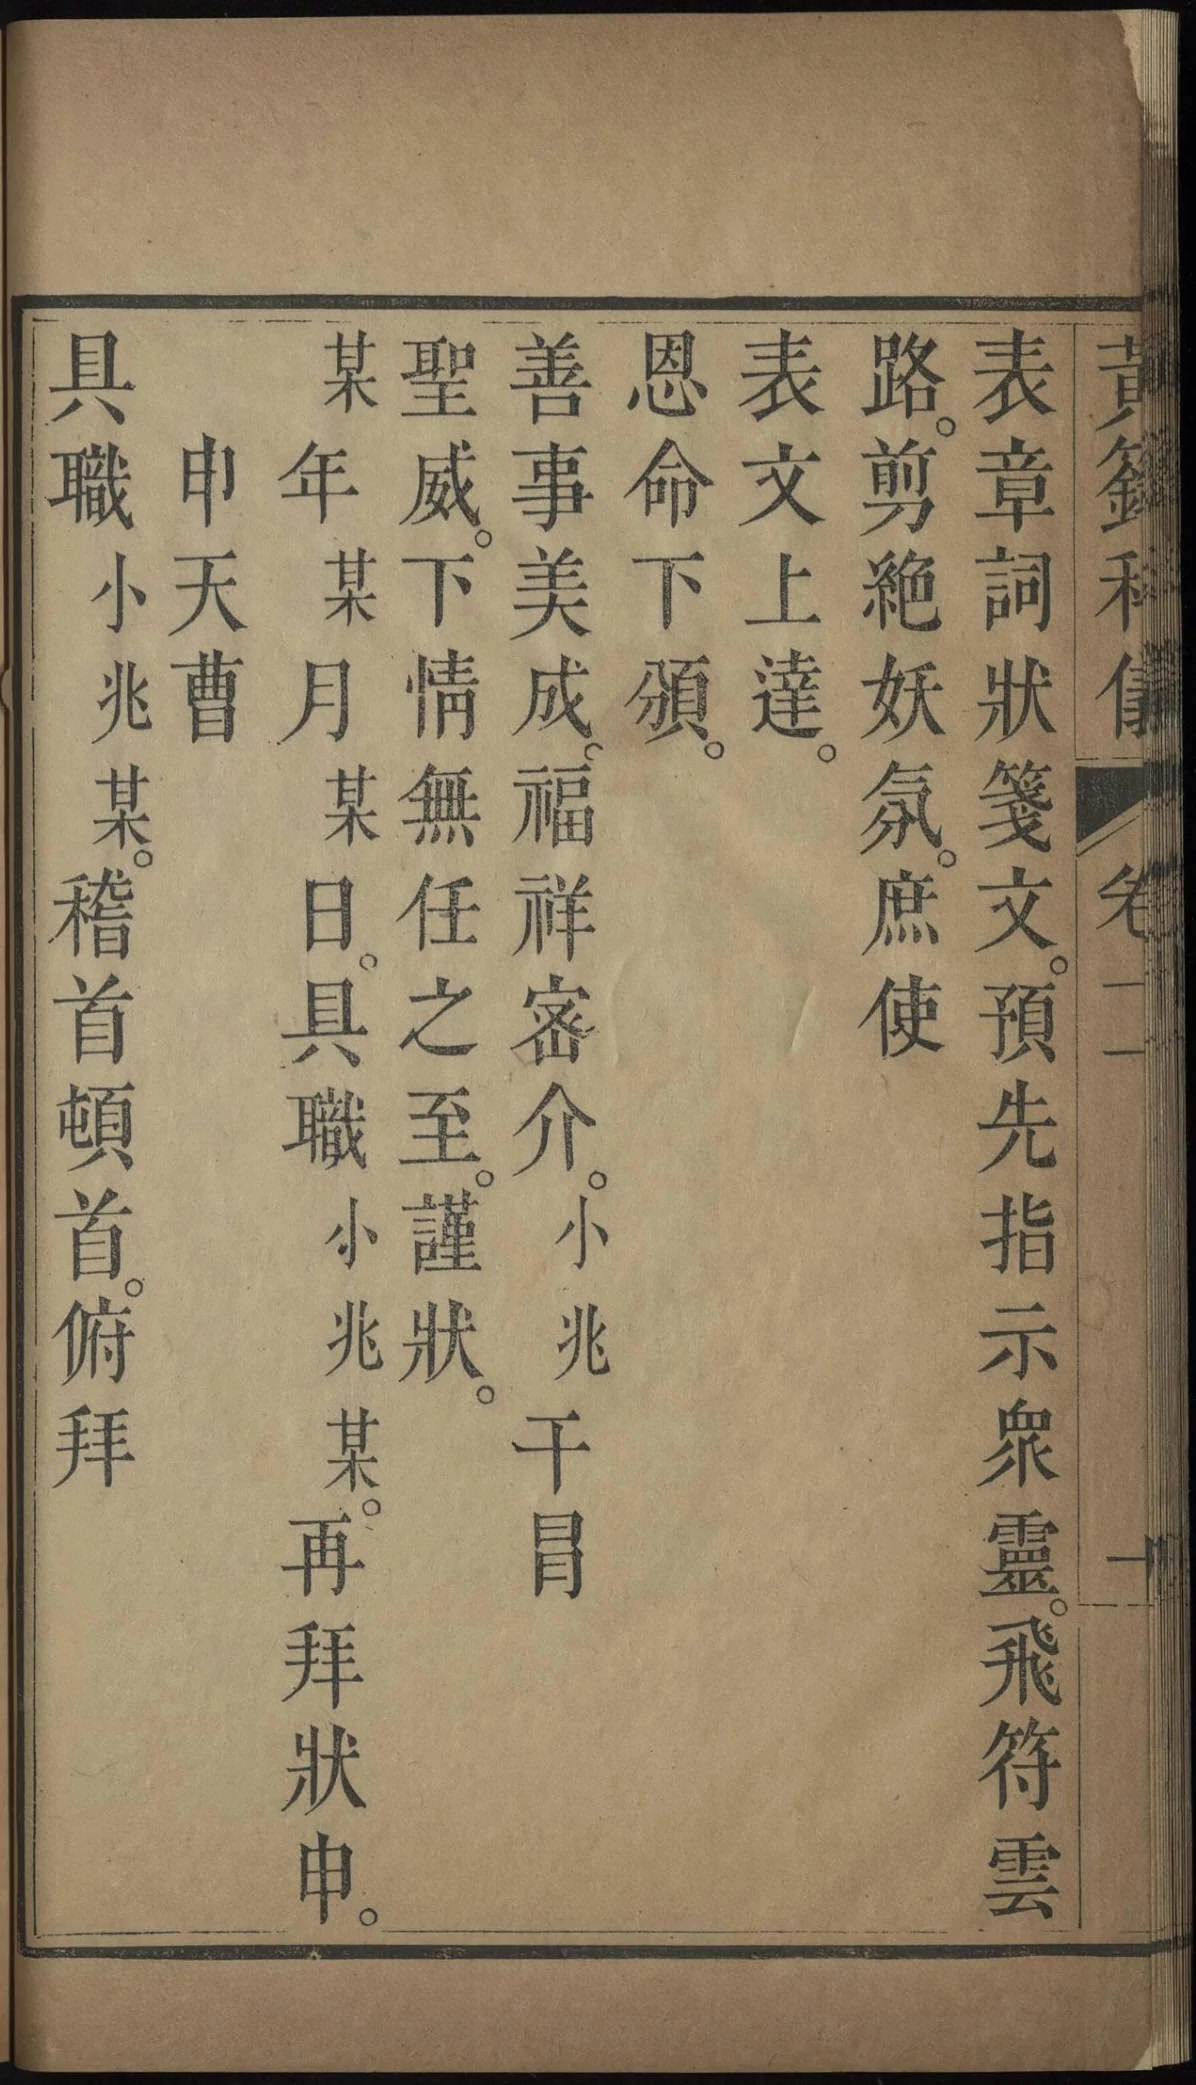 黃籙科儀 卷十一 十
表章詞狀箋文。預先指示衆靈。飛符雲
路。剪絶妖氛。庶使
表文上達。
恩命下頒。
善事美成。福祥宻介。小兆干冒
聖威。下情無任之至。謹狀。
某年某月某日。具職小兆某。再拜狀申。
申天曹
具職小兆某。稽首頓首。俯拜